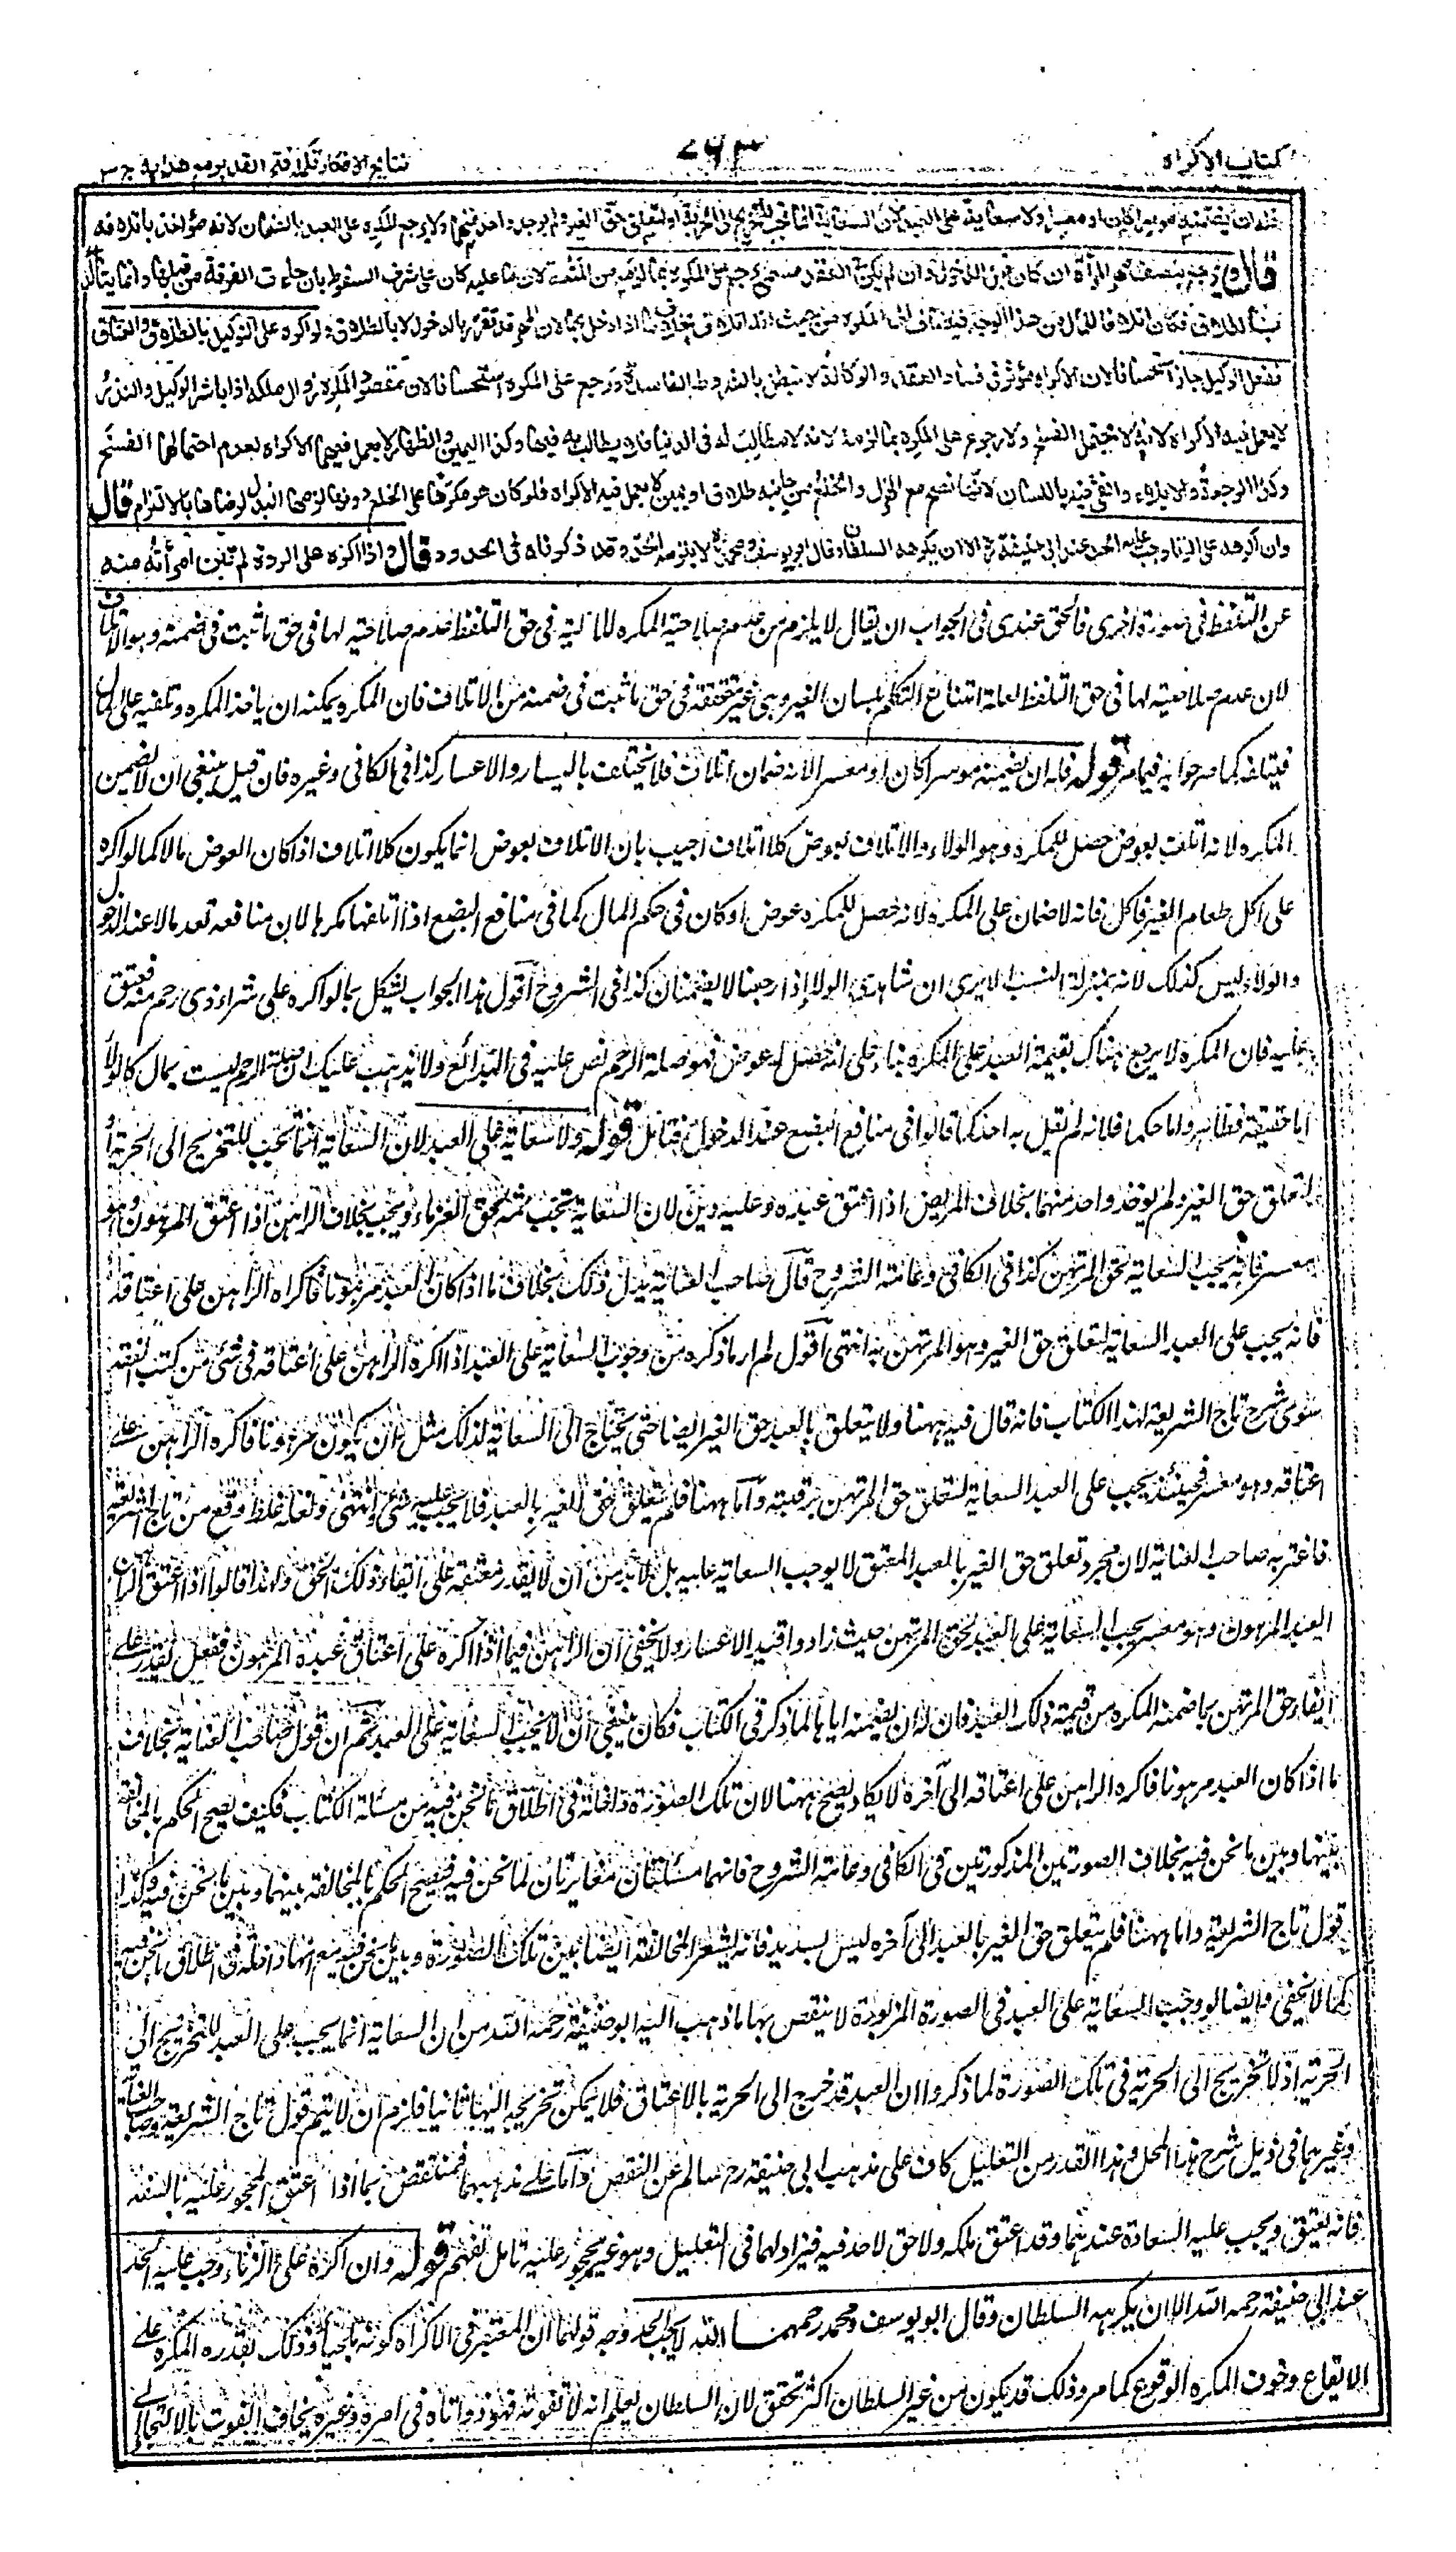 كتاب الاكراه
٧٤٣
نتايج الافكار تكملة فتح القدير مع هداية ج ٣
فله ان يضمنه موسرا كان او معسرا ولا سعاية على العبد لان السعاية انما تجب للتخريج الى الحرية او لتعلق حق الغير ولم يوجد واحد منهما ولا يرجع المكره على العبد بالضمان لانه مؤاخذ باتلافه
قال ويرجع بنصف مهر المرأة ان كان قبل الدخول وان لم يكن في العقد مسمى يرجع على المكره بما لزمه من المتعة لان ما عليه كان على شرف السقوط بان جاءت الفرقة من قبلها وانما يتأكد
بالطلاق فكان اتلافا للمال من هذا الوجه فيضاف الى المكره من حيث انه اتلاف بخلاف ما اذا دخل بها لان المهر قد تقرر بالدخول لا بالطلاق ولو اكره على التوكيل بالطلاق والعتاق
ففعل الوكيل جاز استحسانا لان الاكراه مؤثر في فساد العقد والوكالة لا تبطل بالشروط الفاسدة ويرجع على المكره استحسانا لان مقصود المكره زوال ملكه اذا باشر الوكيل والنذر
لا يعمل فيه الاكراه لانه لا يحتمل الفسخ ولا رجوع على المكره بما لزمه لانه لا مطالب له في الدنيا فلا يطالب به فيها وكذا اليمين والظهار لا يعمل فيهما الاكراه لعدم احتمالهما الفسخ
وكذا الرجعة والايلاء والفئ فيه باللسان لانها تصح مع الهزل والخلع من جانبه طلاق او يمين لا يعمل فيه الاكراه فلو كان هو مكرها على الخلع دونها لزمها البدل لرضاها بالالتزام قال
وان اكرهه على الزنا وجب عليه الحد عند ابي حنيفة رح الا ان يكرهه السلطان وقال ابو يوسف ومحمد رح لا يلزمه الحد وقد ذكرناه في الحدود قال واذا اكره على الردة لم تبن امرأته منه
عن التلفظ في صورة اخرى فالحق عندى في الجواب ان يقال لا يلزم من عدم صلاحية المكره للآلية في حق التلفظ عدم صلاحيته لها في حق ما ثبت في ضمنه وهو الاتلاف
لان عدم صلاحيته لها في حق التلفظ لعلة امتناع التكلم بلسان الغير وهى غير متحققة في حق ما ثبت في ضمنه من الاتلاف فان المكره يمكنه ان ياخذ المكره وتلقيه على المال
فيتلفه كما مر جوابه فيما مر قوله فله ان يضمنه موسرا كان او معسرا لانه ضمان اتلاف فلا يختلف باليسار والاعسار كذا في الكافي وغيره فان قيل ينبغي ان لا يضمن
المكره لانه اتلف بعوض حصل للمكره وهو الولاء والاتلاف بعوض كلا اتلاف اجيب بان الاتلاف بعوض انما يكون كلا اتلاف اذا كان العوض مالا كما لو اكره
على اكل طعام الغير فاكل فانه لا ضمان على المكره لانه حصل للمكره عوض او كان في حكم المال كما في منافع البضع اذا اتلفها مكرها لان منافعه تعد مالا عند الدخول
والولاء ليس كذلك لانه بمنزلة النسب الا يرى ان شاهدى الولاء اذا رجعا لا يضمنان كذا في الشروح اقول هذا الجواب يشكل بما لو اكره على شراء ذى رحم منه فعتق
عليه فان المكره لا يرجع هناك بقيمة العبد على المكره بناء على انه حصل له عوض فهو صلة الرحم نص عليه في البدائع ولا يذهب عليك ان صلة الرحم ليست بمال كالولاء
اما حقيقة فظاهر واما حكما فلانه لم يقل به احد كما قالوا في منافع البضع عند الدخول فتأمل قوله ولا سعاية على العبد لان السعاية انما تجب للتخريج الى الحرية او
لتعلق حق الغير ولم يوجد واحد منهما بخلاف المريض اذا اعتق عبده وعليه دين لان السعاية تجب ثمه لحق الغرماء وبخلاف الراهن اذا اعتق المرهون وهو
معسر فانه يجب السعاية لحق المرتهن كذا في الكافي وعامة الشروح قال صاحب العناية بدل ذلك بخلاف ما اذا كان العبد مرهونا فاكره الراهن على اعتاقه
فانه يجب على العبد السعاية لتعلق حق الغير وهو المرتهن به انتهى اقول لم ار ما ذكره من وجوب السعاية على العبد اذا اكره الراهن على اعتاقه في شئ من كتب الفقه
سوى شرح تاج الشريعة لهذا الكتاب فانه قال فيه ههنا ولا يتعلق بالعبد حق الغير ايضا حتى يحتاج الى السعاية لذلك مثل ان يكون مرهونا فاكره الراهن على
اعتاقه وهو معسر فحينئذ يجب على العبد السعاية لتعلق حق المرتهن برقبته واما ههنا فلم يتعلق حق الغير بالعبد فلا يجب عليه شئ انتهى ولعله غلط وقع من تاج الشريعة
فاغتر به صاحب العناية لان مجرد تعلق حق الغير بالعبد المعتق لا يوجب السعاية عليه بل لا بد من ان لا يقدر معتقه على ايفاء ذلك الحق ولهذا قالوا اذا اعتق الراهن
العبد المرهون وهو معسر يجب السعاية على العبد لحق المرتهن حيث زادوا قيد الاعسار ولا يخفى ان الراهن فيما اذا اكره على اعتاق عبده المرهون ففعل يقدر على
ايفاء حق المرتهن بما ضمنه المكره من قيمة ذلك العبد فان له ان يضمنه اياها لما ذكر في الكتاب فكان ينبغي ان لا يجب السعاية على العبد ثم ان قول صاحب العناية بخلاف
ما اذا كان العبد مرهونا فاكره الراهن على اعتاقه الى آخره لا يكاد يصح ههنا لان تلك الصورة داخلة في اطلاق ما نحن فيه من مسئلة الكتاب فكيف يصح الحكم بالمخالفة
بينها وبين ما نحن فيه بخلاف الصورتين المذكورتين في الكافي وعامة الشروح فانهما مسئلتان مغايرتان لما نحن فيه فيصح الحكم بالمخالفة بينهما وبين ما نحن فيه وكذا
قول تاج الشريعة واما ههنا فلم يتعلق حق الغير بالعبد الى آخره ليس بسديد فانه يشعر المخالفة ايضا بين تلك الصورة وبين ما نحن فيه مع انها داخلة في اطلاق ما نحن فيه
كما لا يخفى وايضا لو وجبت السعاية على العبد في الصورة المزبورة لا ينتقض بها ما ذهب اليه ابو حنيفة رحمه الله من ان السعاية انما يجب على العبد للتخريج الى
الحرية اذ لا تخريج الى الحرية في تلك الصورة لما ذكروا ان العبد قد خرج الى الحرية بالاعتاق فلا يمكن تخريجه اليها ثانيا فلزم ان لا يتم قول تاج الشريعة وصاحب العناية
وغيرهما في ذيل شرح هذا المحل وهذا القدر من التعليل كاف على مذهب ابي حنيفة رح سالم عن النقض واما على مذهبهما فمنتقض بما اذا اعتق المحجور عليه بالسفه
فانه يعتق ويجب عليه السعاية عندهما وقد اعتق ملكه ولا حق لاحد فيه فيزاد لهما في التعليل وهو غير محجور عليه تأمل تفهم قوله وان اكره على الزناء وجب عليه الحد
عند ابي حنيفة رحمه الله الا ان يكرهه السلطان وقال ابو يوسف ومحمد رحمهما الله لا يجب الحد وجه قولهما ان المعتبر في الاكراه كونه ملجيا وذلك بقدرة المكره على
الايقاع وخوف المكره الوقوع كما مر وذلك قد يكون من غير السلطان اكثر تحقق لان السلطان يعلم انه لا تفوته فهو ذو اناة في امره وغيره يخاف الفوت بالالتجاء الى